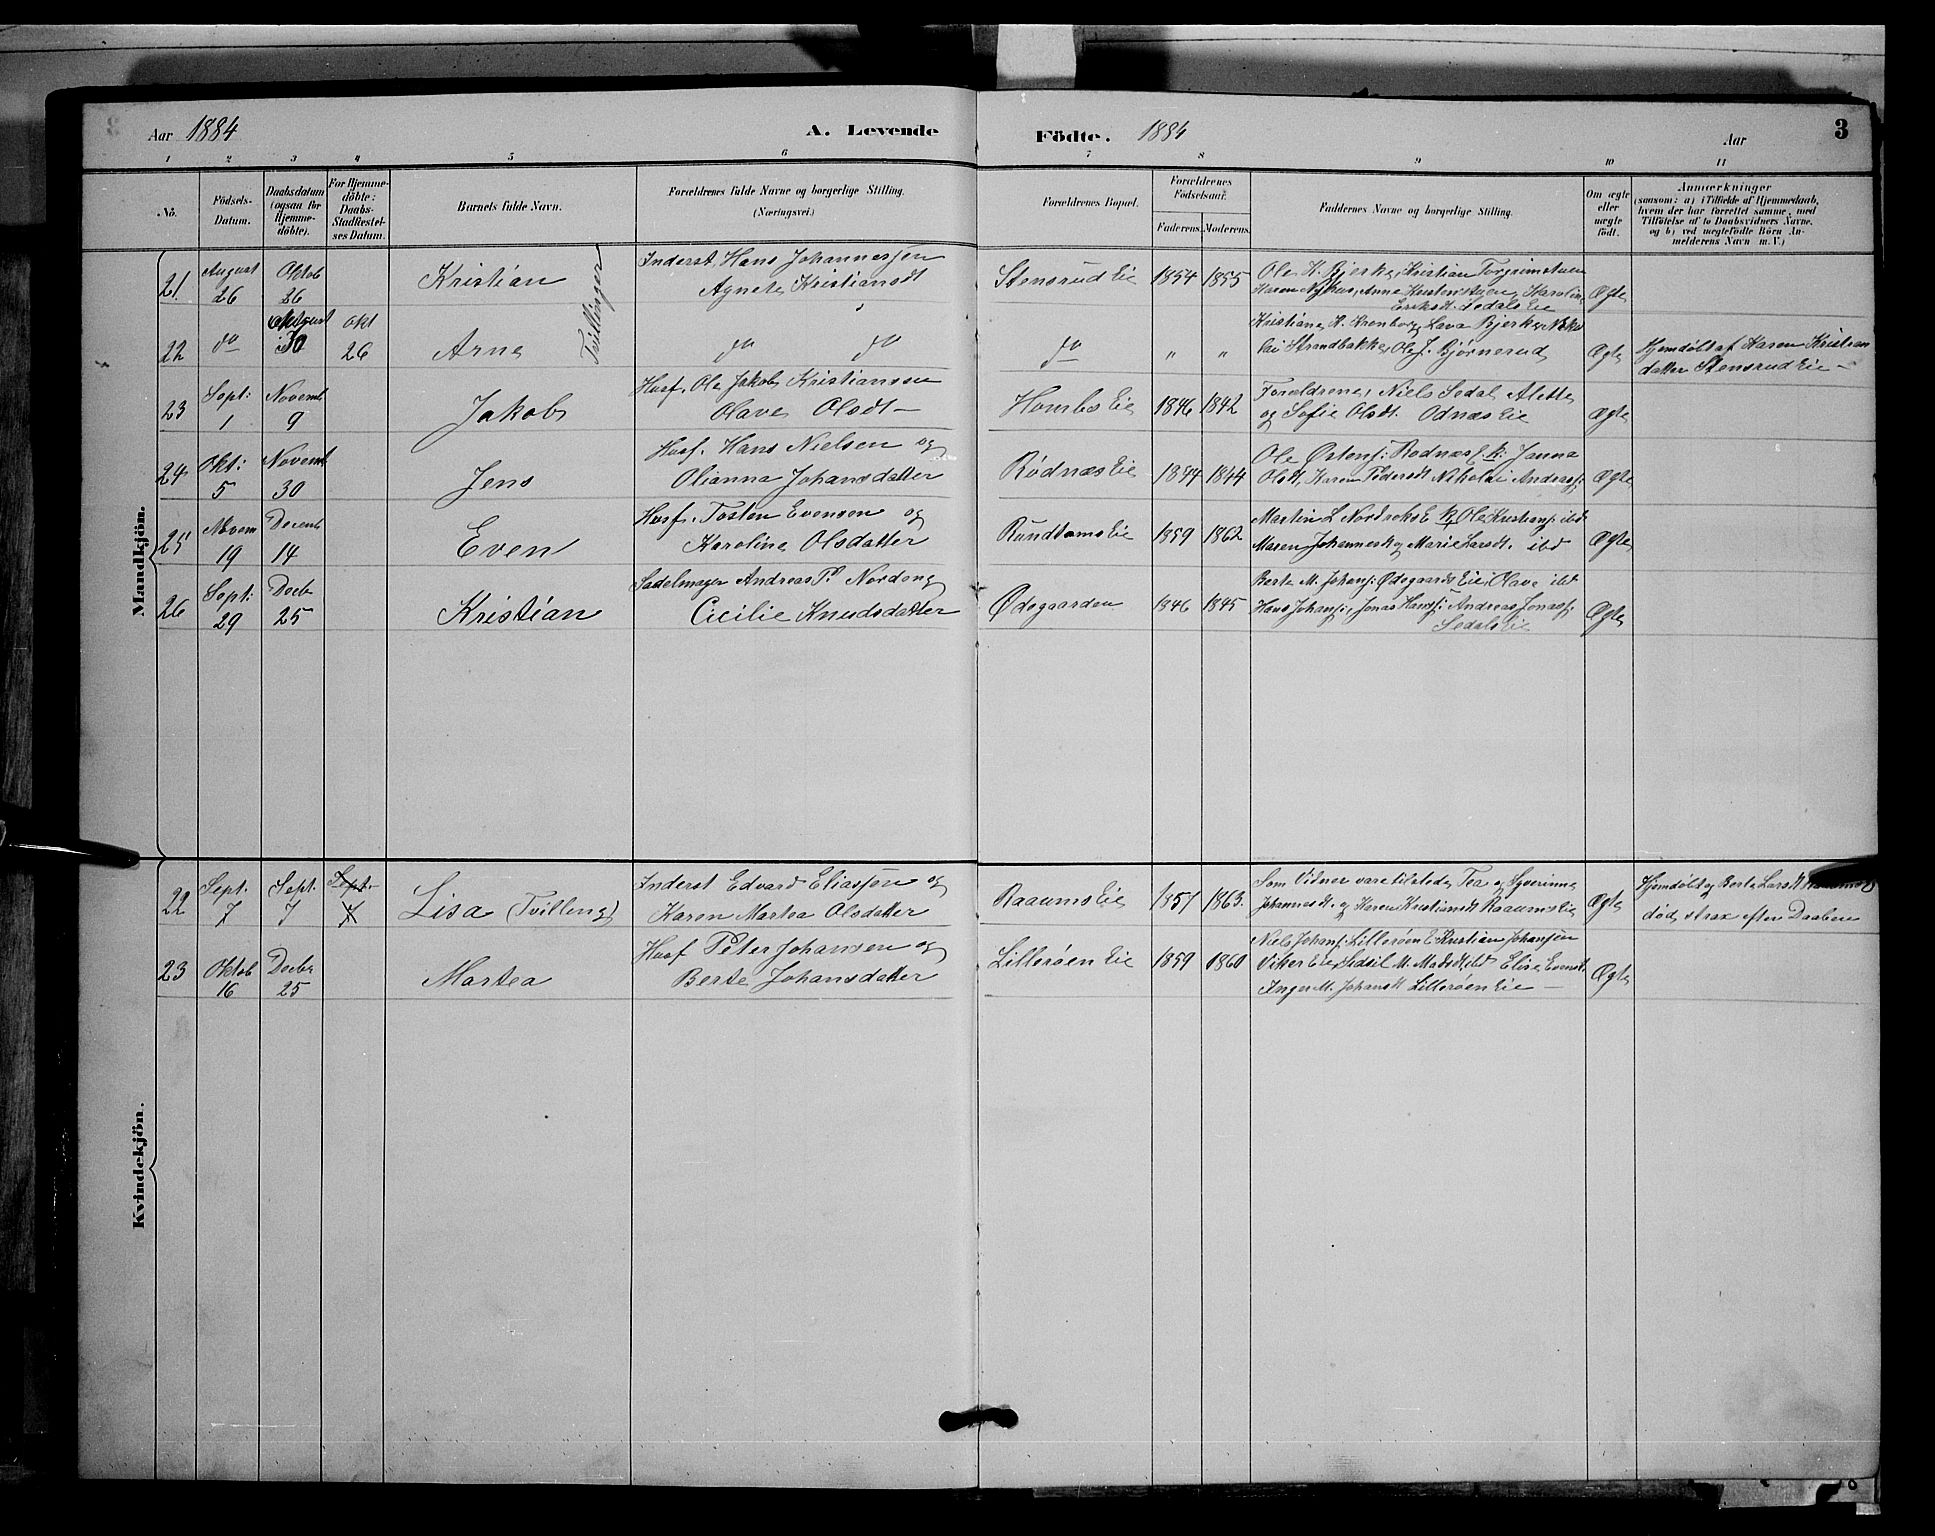 Aar 1884 A. Levende Födte. 1884 Aar 3
1 2 3 4 5 6 7 8 9 10 11
No. Födsels-Datum. Daabsdatum (ogsaa for Hjemme-döbte). For Hjemme-döbte: Daabs-Stadfæstelses Datum. Barnets fulde Navn. Forældrenes fulde Navne og borgerlige Stilling. (Næringsvei.) Forældrenes Bopæl. Forældrenes Födselsaar. Faderens. Moderens. Faddernes Navne og borgerlige Stilling. Om ægte eller uægte födt. Anmærkninger (saasom: a) i Tilfælde af Hjemmedaab, hvem der har forrettet samme, med Tilföielse af to Daabsvidners Navne, og b) ved uægtefödte Börn Anmelderens Navn m. V.)
Mandkjön.
Tvillinger
21 August 26 Oktob 26 Kristian Inderst, Hans Johannesjen
Agnete Kristiansdt Stensrud Eie 1854 1855 Ole K. Bjerke, Kristian Torgrimstuen
Maren Nyhus, Anne Kristenstuen, Karoline
Eriksdt. Sedals Eie Ægte
22 do 30 okt 26 Arne do do do " " Kristiane H. Kronborg, Lava Bjerke, Niko
lai Strandbakke, Ole J. Bjørnerud Ægte Hjemdøbt af Karen Kristian
datter Stensrud Eie —
23 Sept: 1 Novemb 9 Jakob Husf. Ole Jakob Kristianssen
Olave Olsdt — Hombs Eie 1846 1842 Forældrene, Niels Sedal Alette
og Sofie Olsdt. Odnæs Eie Ægte
24 Okt: 5 Novemb 30 Jens Husf. Hans Nielsen og
Olianna Johansdatter Rødnæs Eie 1844 1844 Ole Østensj: Rodnæs f. k: Janna
Olsdt, Karen Pedersdt Nikolai Andreasj: Ægte
25 Novem 19 Decemb 14 Even Husf. Tosten Evensen og
Karoline Olsdatter Rundtoms Eie 1859 1862 Martin L Nordraks E k, Ole Kristiansj: ibd
Maren Johannesdt og Marie Larsdt. ibd Ægte
26 Sept: 29 Decbr 25 Kristian Sadelmager Andreas P. Nordeng
Cicilie Knudsdatter Ødegaarden 1846 1845 Berte M. Johansj: Ødegaards Eie, Olave ibd
Hans Johansj:, Jonas Hansj: Andreas Jonasj:
Sedals Eie Ægte
Kvindekjön.
22 Sept. 7 Sept. 7 Sept. 7 Lisa (Tvilling) Inderst Edvard Eliasjen og
Karen Martea Olsdatter Raaums Eie 1857 1863. Som Vidner vare tilstede, Tea og Syverinne
Johannesdt. og Karen Kristiansdt Raaums Eie Ægte Hjemdøbt af Berte Larsdt Raaums E
død strax efter Daaben
23 Oktob 16 Decbr 25 Martea Husf Peter Johansen og
Berte Johansdatter Lillerøen Eie 1859 1860 Niels Johansj: Lillerøen E Kristian Johansjen
Vitter Eie, Sidsil M. Madsdt, ibd Elise Evensdt
Inger M. Johansdt Lillerøen Eie — Ægte